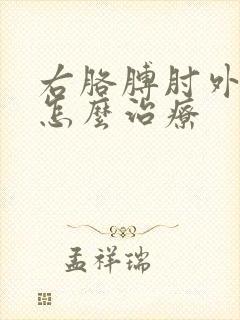 右胳膊肘外
怎麼治療
孟祥瑞